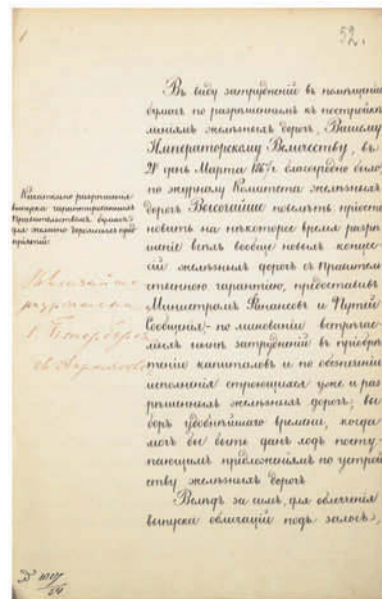 52.
Въ виду затрудненій въ помѣщеніи
бумагъ по разрѣшеннымъ къ постройкѣ
линіямъ желѣзныхъ дорогъ, Вашему
Императорскому Величеству, въ
день Марта благоугодно было,
по журналу Комитета желѣзныхъ
дорогъ Высочайше повелѣть: пріоста
новить на некоторое время разрѣ
шеніе всѣхъ вообще новыхъ концес
сій желѣзныхъ дорогъ съ Правитель
ственною гарантіею, предоставивъ
Министрамъ Финансовъ и Путей
Сообщенія - по минованіи встрѣчае
мыхъ нынѣ затрудненій въ пріобрѣ
теніи капиталовъ и по обезпеченіи
исполненія строющихся уже и раз
рѣшенныхъ желѣзныхъ дорогъ, вы
боръ удобнѣйшаго времени, когда
могъ бы быть данъ ходъ посту
пающимъ предложеніямъ по устрой
ству желѣзныхъ дорогъ
Вслѣдъ за симъ, для облегченія
выпуска облигацій подъ залогъ,
Касательно разрѣшенія
выпуска гарантированныхъ
Правительствомъ бумагъ
для желѣзно дорожныхъ пред
пріятій.
Высочайше
разрѣшено